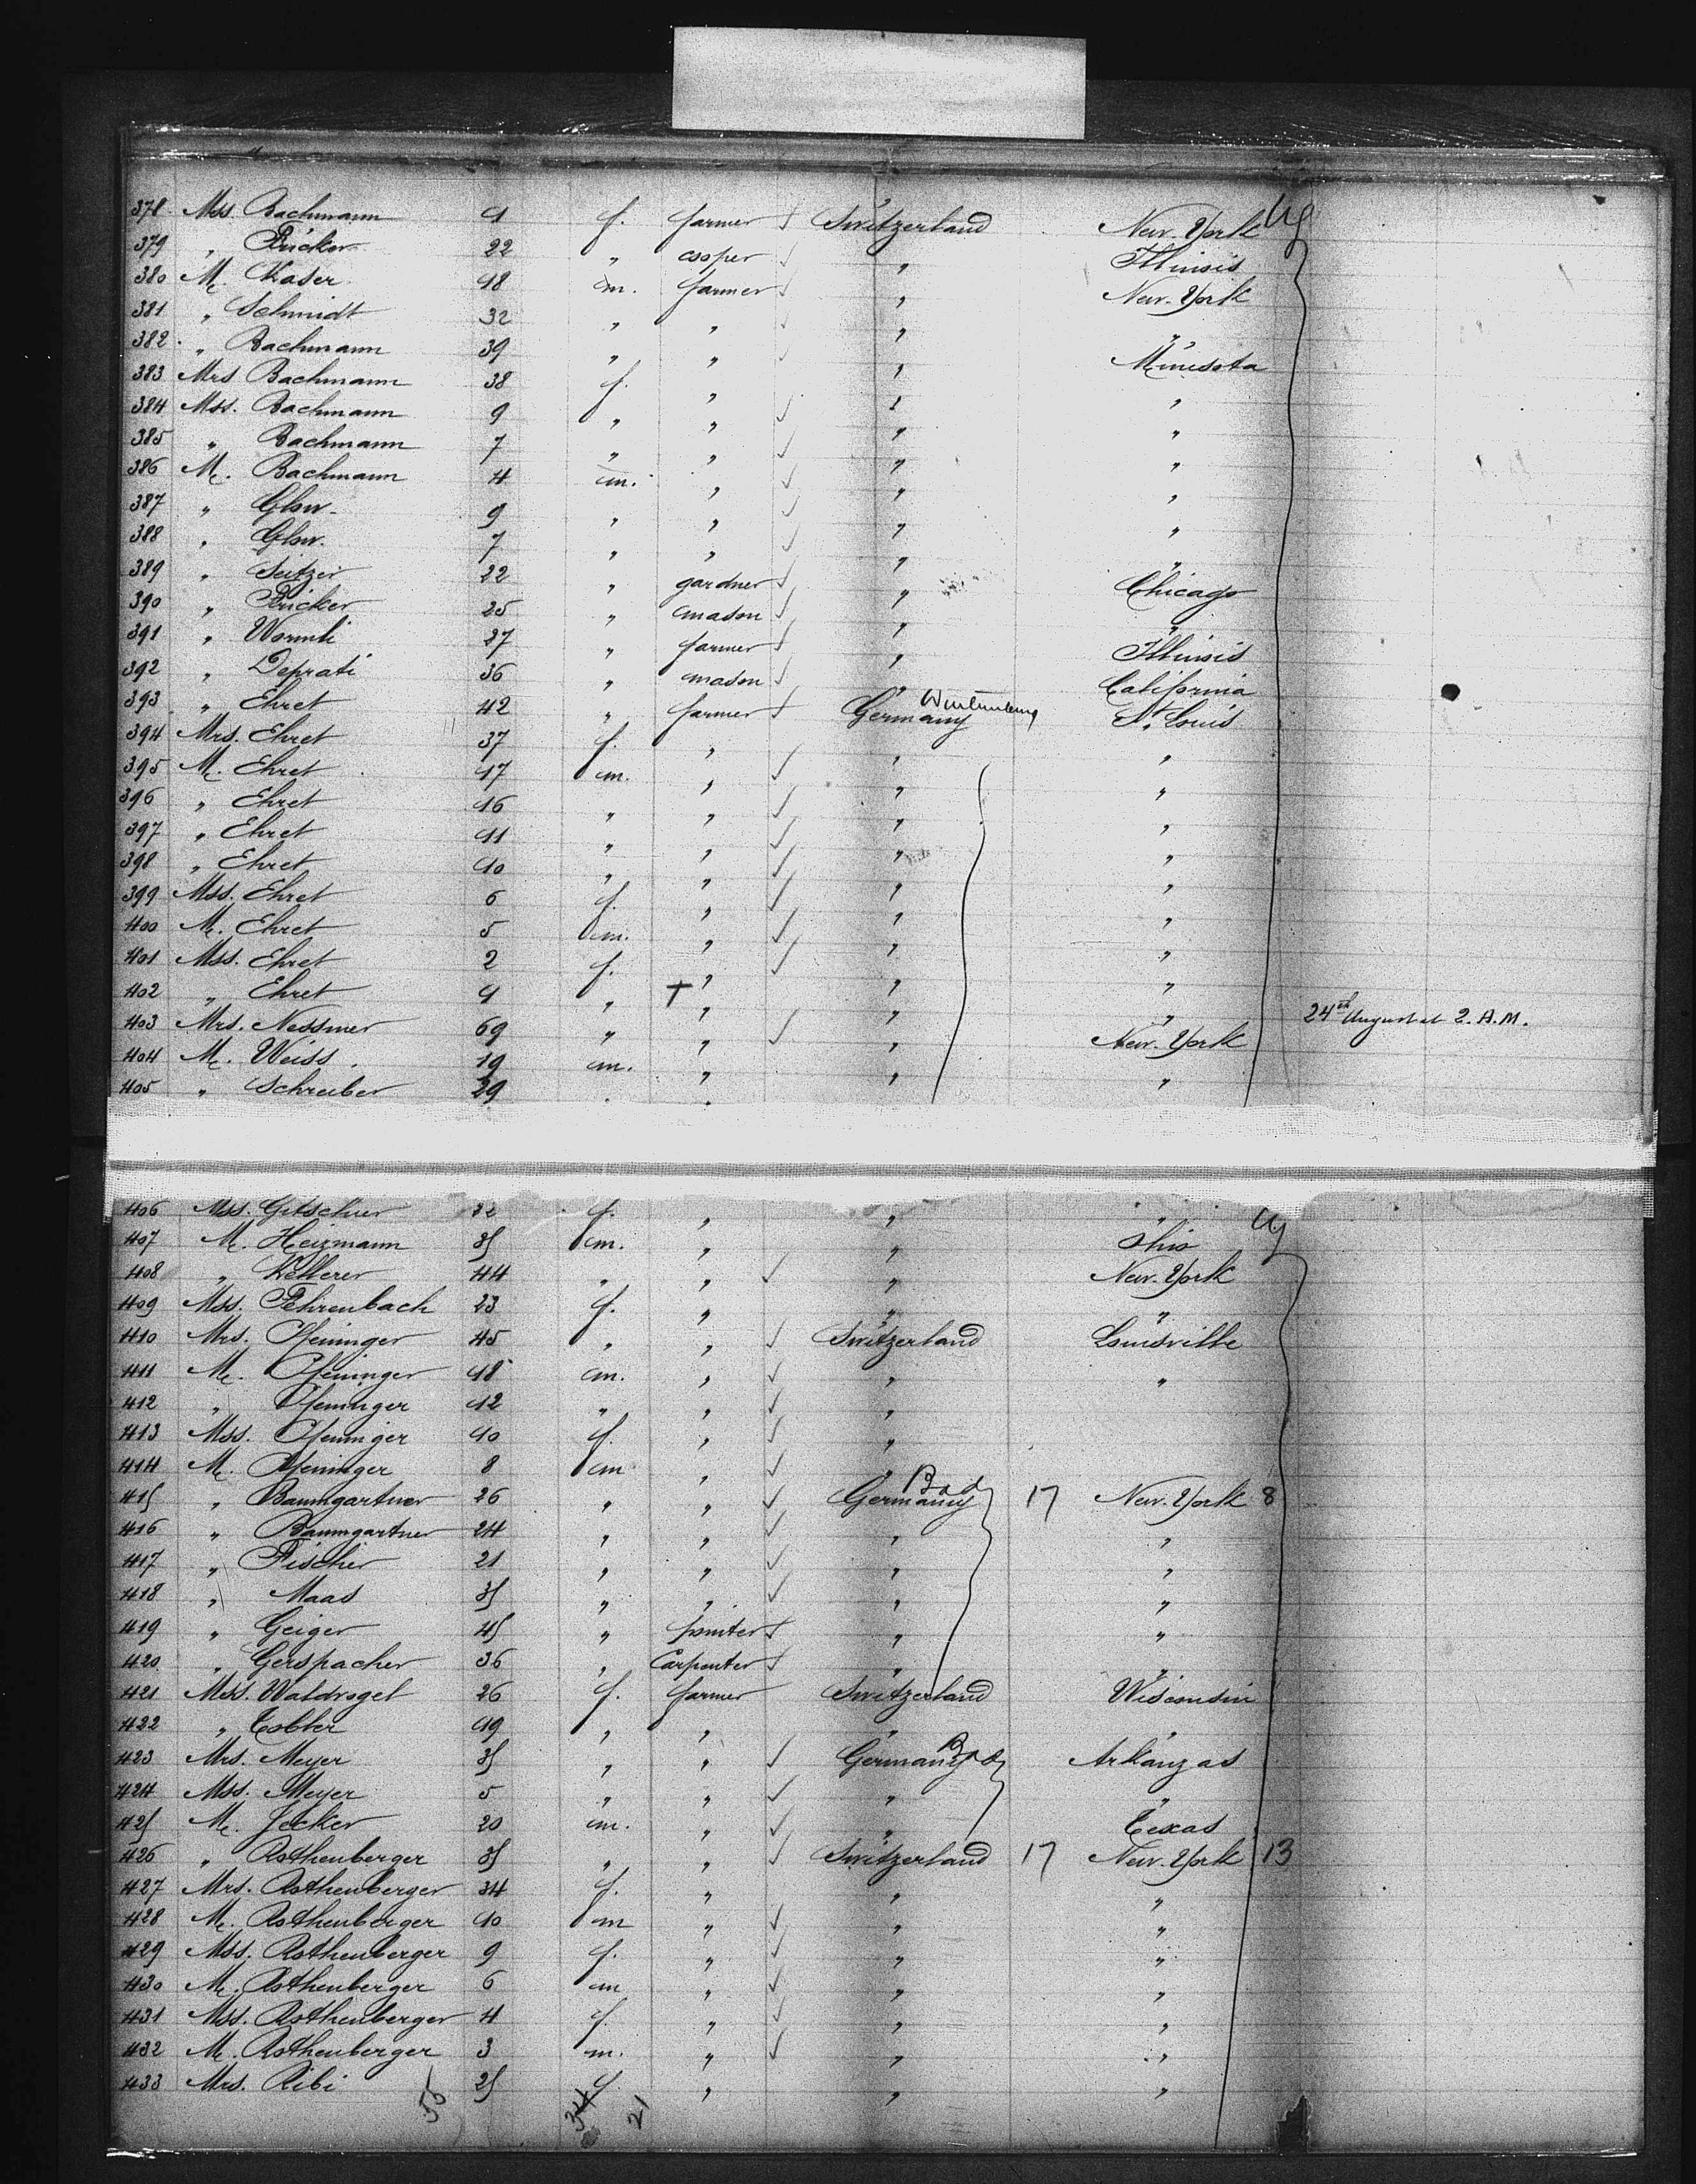 378. Mss. Bachmann 9 f. farmer Switzerland New-York
379 " Fricker 22 " cooper " Illinois
380 M. Kaser 18 m. farmer " New-York
381 " Schmidt 32 " " " "
382. " Bachmann 39 " " " Minesota
383 Mrs Bachmann 38 f. " " "
384 Mss. Bachmann 9 " " " "
385 " Bachmann 7 " " " "
386 M. Bachmann 4 m. " " "
387 " Glow. 9 " " " "
388 " Glow. 7 " " " "
389 " Seitzer 22 " gardner " Chicago
390 " Fricker 25 " mason " "
391 " Wormli 27 " farmer " Illinois
392 " Deprati 36 " mason " California
393 " Ehret 42 " farmer Germany St. Louis
394 Mrs. Ehret 37 f. " " "
395 M. Ehret 17 m. " " "
396 " Ehret 16 " " " "
397 " Ehret 11 " " " "
398 " Ehret 10 " " " "
399 Mss. Ehret 6 f. " " "
400 M. Ehret 5 m. " " "
401 Mss. Ehret 2 f. " " "
402 " Ehret 1 " " " " 24th August at 2. A.M.
403 Mrs. Nessmer 69 " " " New-York
404 M. Weiss. 19 m. " " "
405 " Schreiber 29 " " "
406 Mss. 22 f. " " "
407 M. Heizmann 35 m. " " Ohio
408 " Ketterer 44 " " " New-York
409 Mss. Fehrenbach 23 f. " " "
410 Mrs. Pfeninger 45 " " Switzerland Louisville
411 M. Pfeninger 18 m. " " "
412 " Pfeninger 12 " " "
413 Mss. Pfeninger 10 f. " "
414 M. Pfeninger 8 m " "
415 " Baumgartner 26 " " Germany Bad 17 New-York 8
416 " Baumgartner 24 " " " "
417 " Fischer 21 " " " "
418 " Maas 35 " " " "
419 " Geiger 45 " " "
420 " Gerspacher 36 " Carpenter " "
421 Mss. Waldvogel 26 f. farmer Switzerland Wisconsin
422 " Tobler 19 " " " "
423 Mrs. Meyer 35 " " Germany Bad Arkanzas
424 Mss. Meyer 5 " " " "
425 M. Jecker 20 m. " " Texas
426 " Rothenberger 35 " " Switzerland 17 New-York 13
427 Mrs. Rothenberger 34 f. " " "
428 M. Rothenberger 10 m " " "
429 Mss. Rothenberger 9 f. " " "
430 M. Rothenberger 6 m " " "
431 Mss. Rothenberger 4 f. " " "
432 M. Rothenberger 3 m. " " "
433 Mrs. Ribi 25 f. " " "
55 34 21